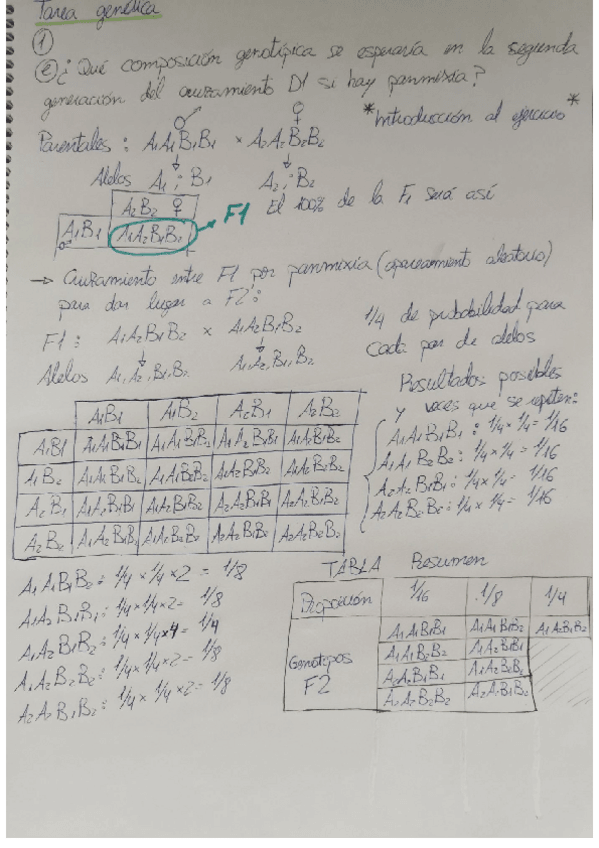 Tarea genética
①
② ¿Qué composición genotípica se esperaría en la segunda
generación del cruzamiento D1 si hay panmixia?
*Introducción al ejercicio*
Parentales: A1A1B1B1 × A2A2B2B2
♂ ♀
Alelos A1; B1 A2; B2
A2B2 ♀
A1B1 ♂ A1A2B1B2 → F1
El 100% de la F1 será así
→ Cruzamiento entre F1 por panmixia (apareamiento aleatorio)
para dar lugar a F2:
F1: A1A2B1B2 × A1A2B1B2
Alelos A1, A2, B1, B2 A1, A2, B1, B2
1/4 de probabilidad para
cada par de alelos
A1B1 A1B2 A2B1 A2B2
A1B1 A1A1B1B1 A1A1B1B2 A1A2B1B1 A1A2B1B2
A1B2 A1A1B1B2 A1A1B2B2 A1A2B1B2 A1A2B2B2
A2B1 A1A2B1B1 A1A2B1B2 A2A2B1B1 A2A2B1B2
A2B2 A1A2B1B2 A1A2B2B2 A2A2B1B2 A2A2B2B2
Resultados posibles
y veces que se repiten:
A1A1B1B1: 1/4 × 1/4 = 1/16
A1A1B2B2: 1/4 × 1/4 = 1/16
A2A2B1B1: 1/4 × 1/4 = 1/16
A2A2B2B2: 1/4 × 1/4 = 1/16
A1A1B1B2: 1/4 × 1/4 × 2 = 1/8
A1A2B1B1: 1/4 × 1/4 × 2 = 1/8
A1A2B1B2: 1/4 × 1/4 × 4 = 1/4
A1A2B2B2: 1/4 × 1/4 × 2 = 1/8
A2A2B1B2: 1/4 × 1/4 × 2 = 1/8
TABLA Resumen
Proporción 1/16 1/8 1/4
Genotipos
F2
A1A1B1B1 A1A1B1B2 A1A2B1B2
A1A1B2B2 A1A2B1B1
A2A2B1B1
A2A2B1B2